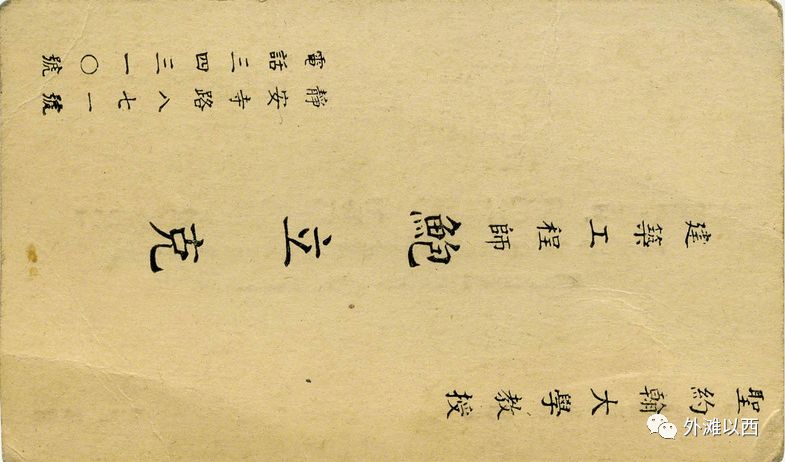 聖約翰大學教授
建築工程師
鮑立克
靜安寺路八七一號
電話三四三一〇號
外滩以西